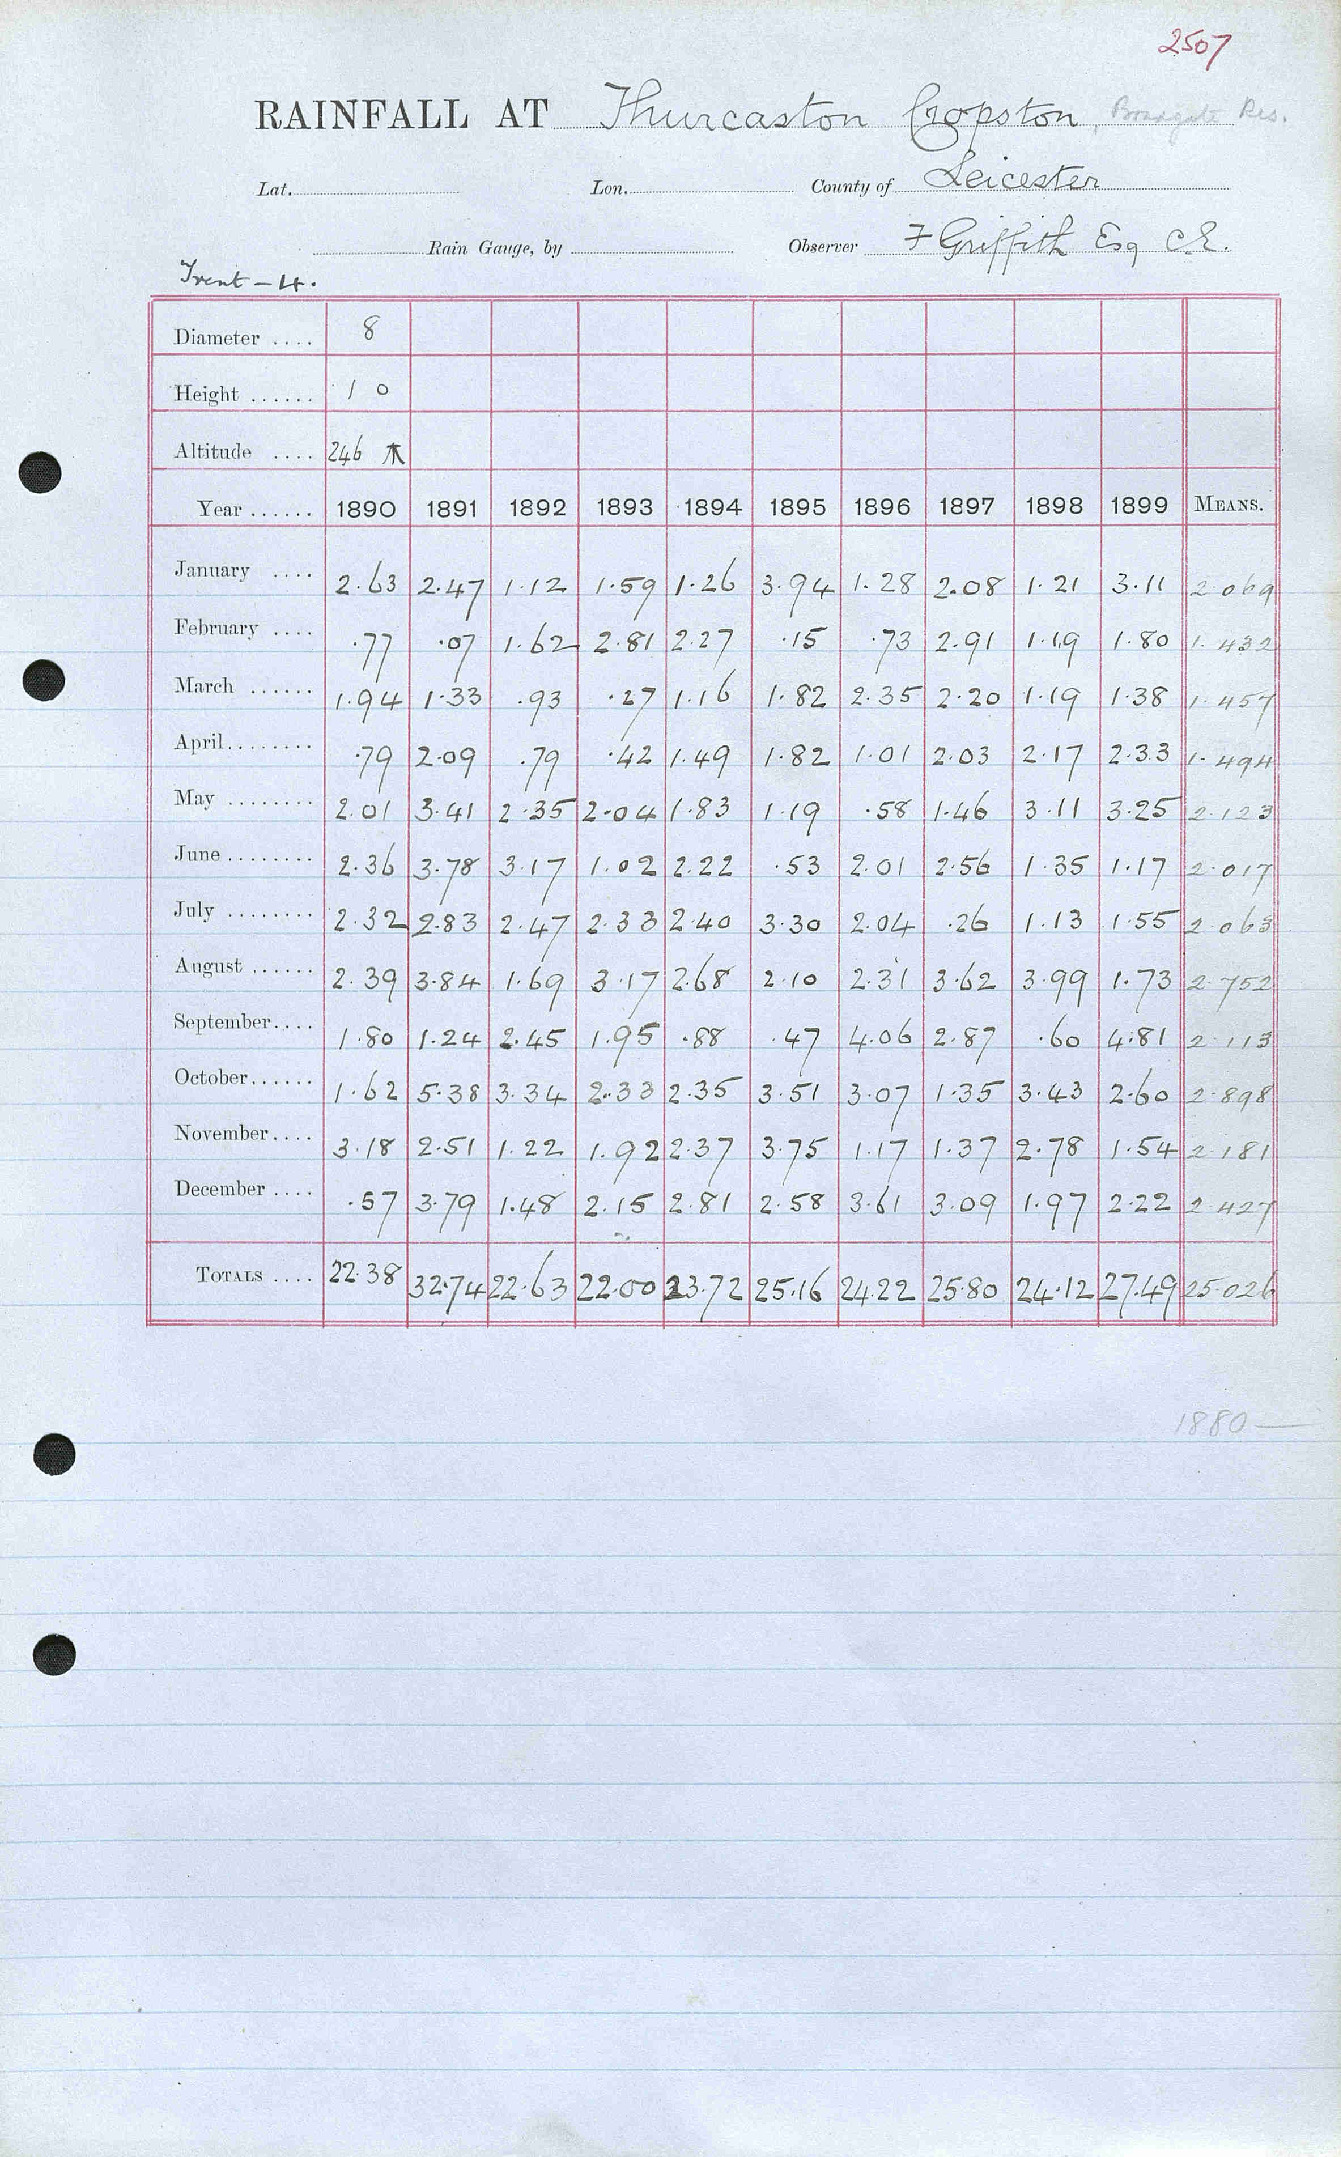 2507
RAINFALL AT Thurcaston Cropston, Bradgate Res.
Lat. Lon. County of Leicester
Rain Gauge, by Observer F Griffith Esq C.E.
Trent - 4.
Diameter .... 8
Height ...... 1 0
Altitude .... 246
Year ...... 1890 1891 1892 1893 1894 1895 1896 1897 1898 1899 MEANS.
January .... 2.63 2.47 1.12 1.59 1.26 3.94 1.28 2.08 1.21 3.11 2.069
February .... .77 .07 1.62 2.81 2.27 .15 .73 2.91 1.19 1.80 1.432
March ...... 1.94 1.33 .93 .27 1.16 1.82 2.35 2.20 1.19 1.38 1.457
April ........ .79 2.09 .79 .42 1.49 1.82 1.01 2.03 2.17 2.33 1.494
May ........ 2.01 3.41 2.35 2.04 1.83 1.19 .58 1.46 3.11 3.25 2.123
June ........ 2.36 3.78 3.17 1.02 2.22 .53 2.01 2.56 1.35 1.17 2.017
July ........ 2.32 2.83 2.47 2.33 2.40 3.30 2.04 .26 1.13 1.55 2.063
August ...... 2.39 3.84 1.69 3.17 2.68 2.10 2.31 3.62 3.99 1.73 2.752
September.... 1.80 1.24 2.45 1.95 .88 .47 4.06 2.87 .60 4.81 2.113
October...... 1.62 5.38 3.34 2.33 2.35 3.51 3.07 1.35 3.43 2.60 2.898
November.... 3.18 2.51 1.22 1.92 2.37 3.75 1.17 1.37 2.78 1.54 2.181
December .... .57 3.79 1.48 2.15 2.81 2.58 3.61 3.09 1.97 2.22 2.427
TOTALS .... 22.38 32.74 22.63 22.00 23.72 25.16 24.22 25.80 24.12 27.49 25.026
1880 —